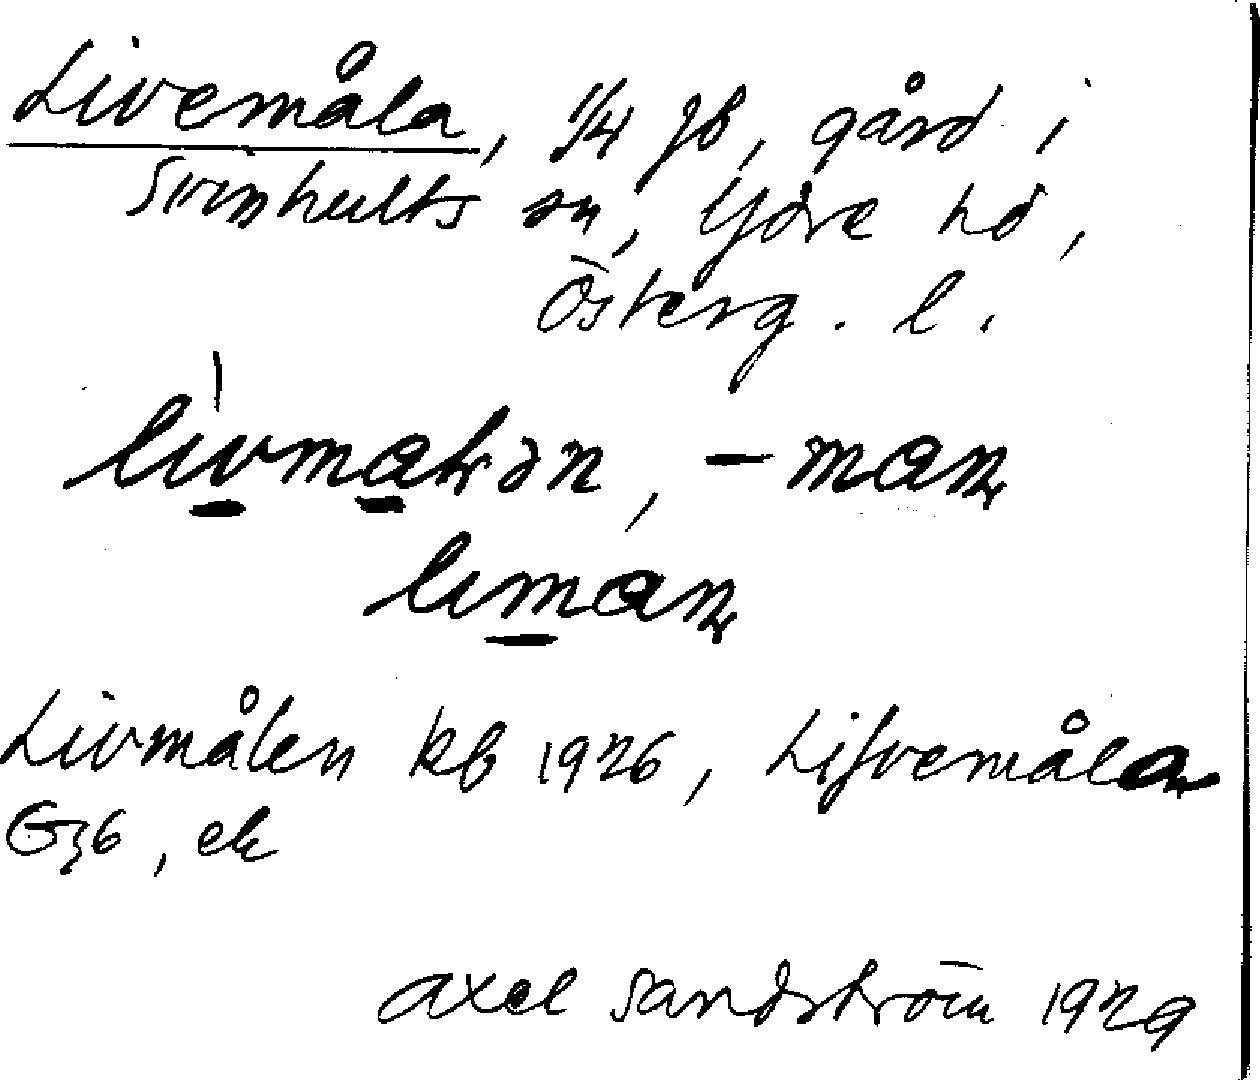 Livemåla, 1/4 Jb, gård i
Svinhults sn, Ydre hd,
Österg. l.
Livmålen kb 1926, Lifvemåla
G36, ek
Axel Sandström 1929